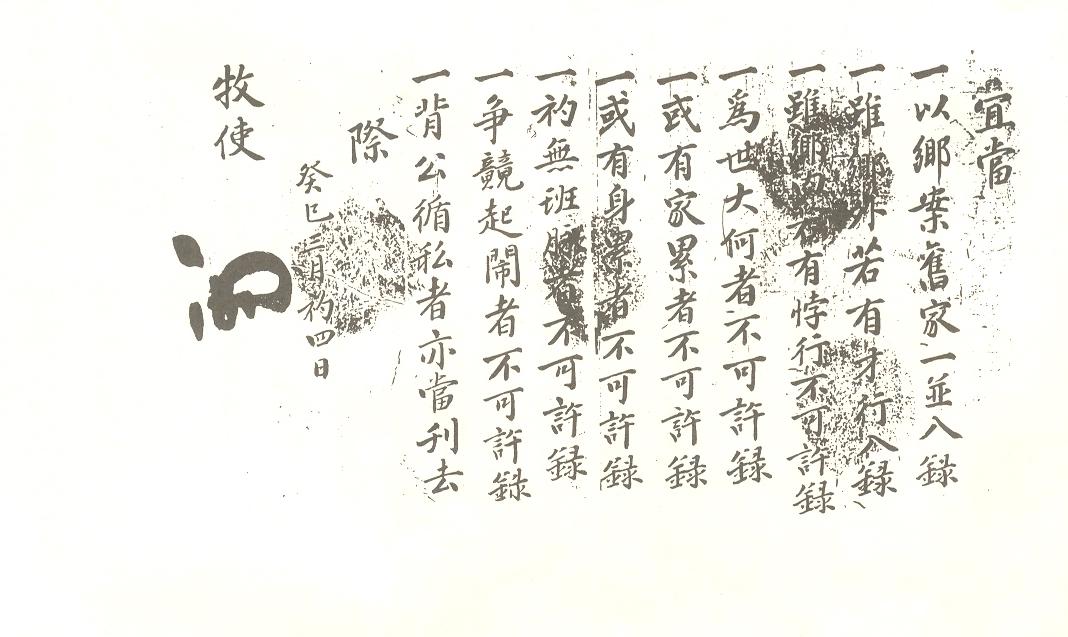 宜當
一以鄉案舊家一並入錄
一雖鄉外若有才行入錄
一雖鄉內若有悖行不可許錄
一爲世大何者不可許錄
一或有家累者不可許錄
一或有身累者不可許錄
一初無班脉者不可許錄
一爭競起鬧者不可許錄
一背公循私者亦當刊去
際
癸巳三月初四日
牧使